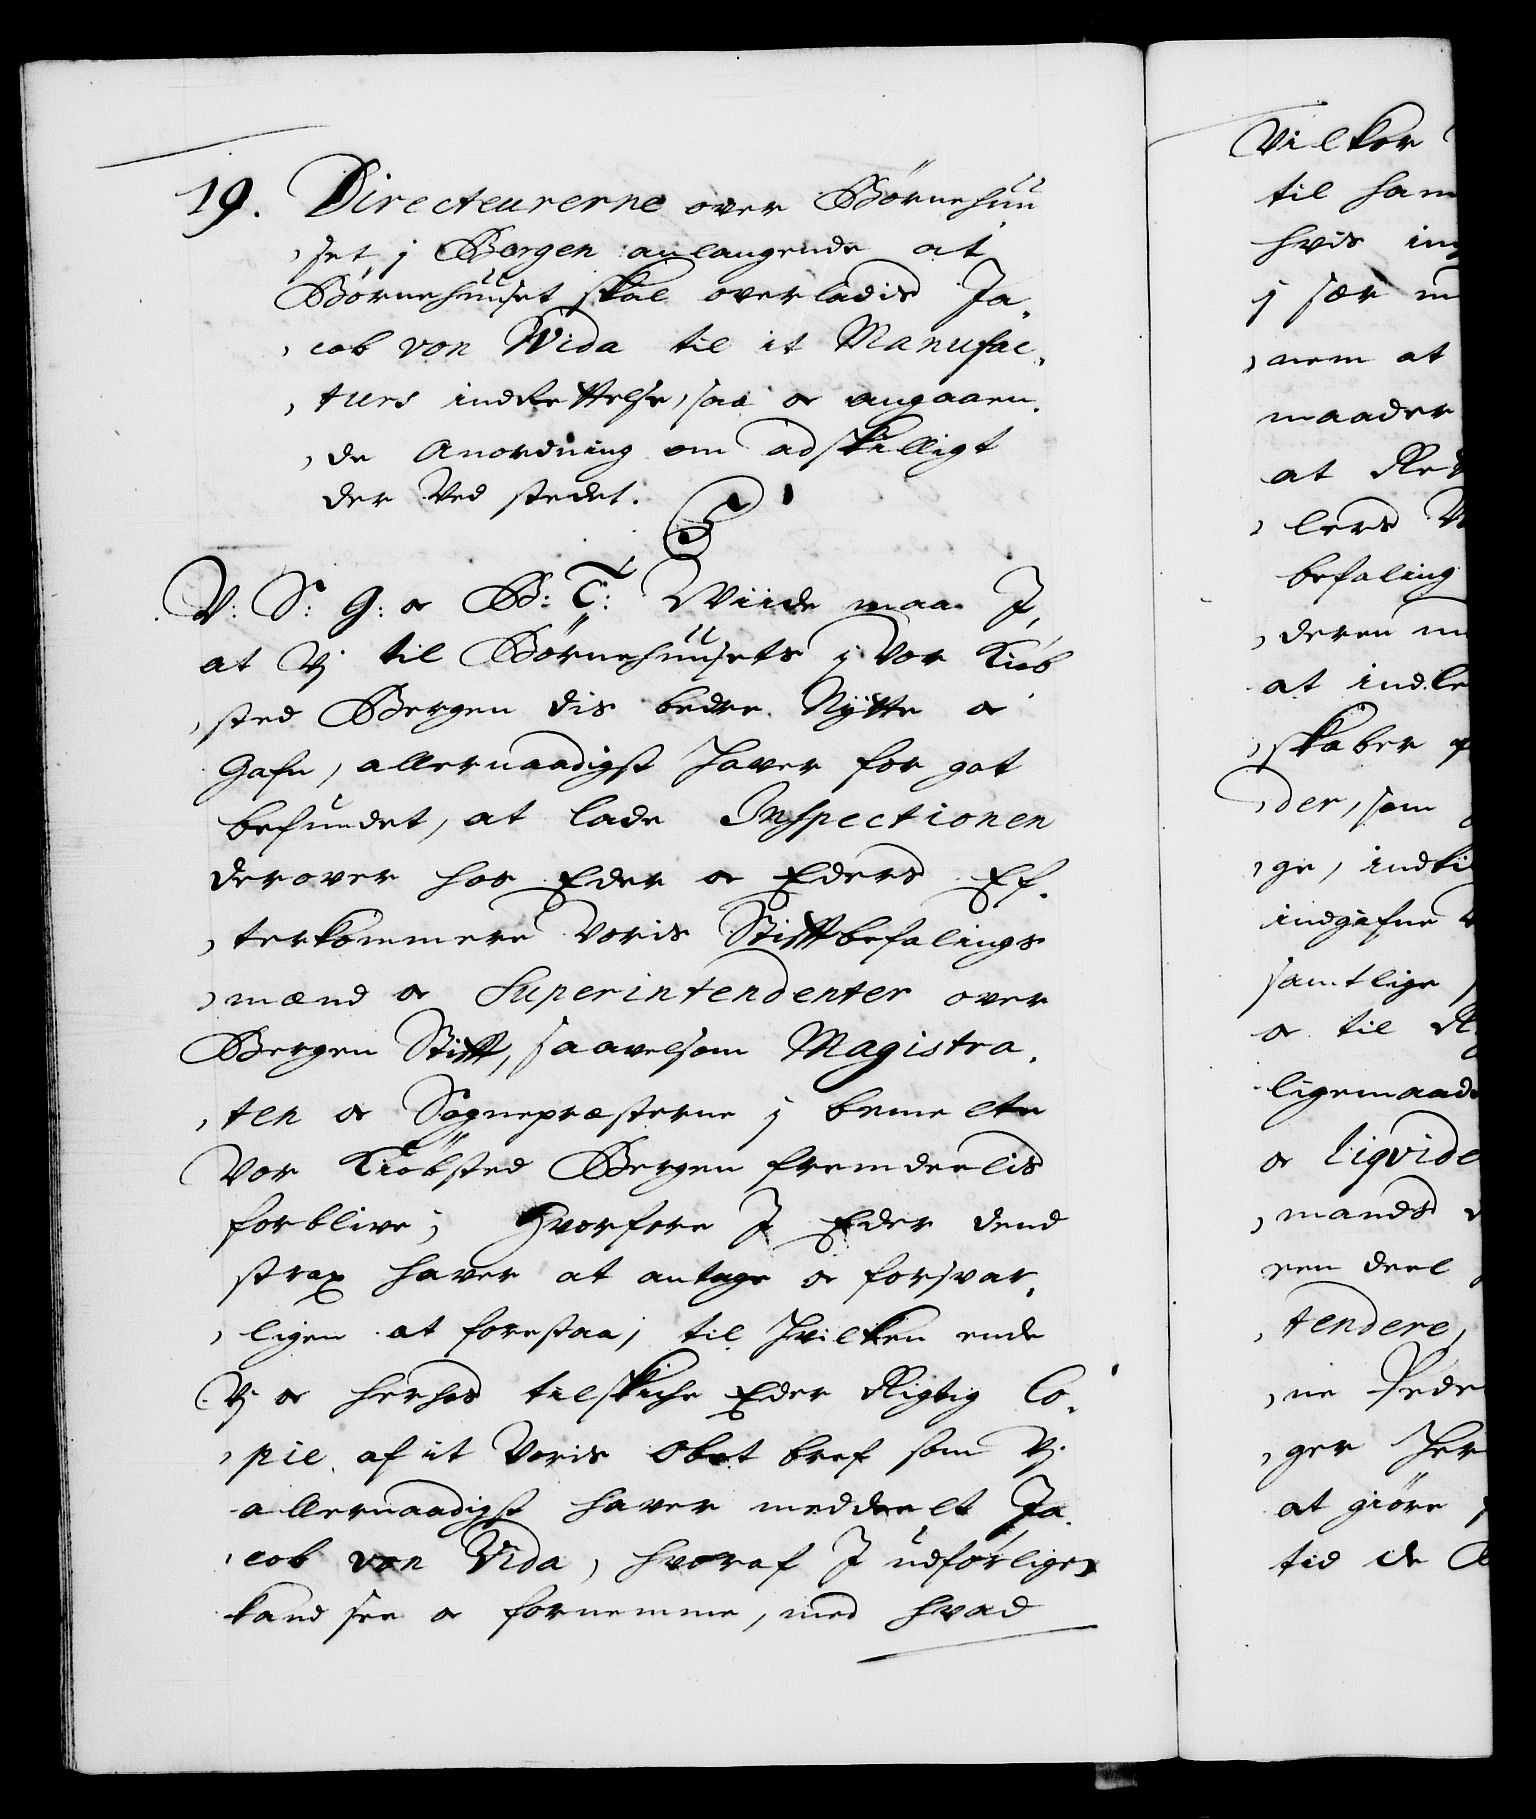 19. Directeurerne over Børnehuu
,set i Bergen anlangende at
Børnehuuset skal overladis Ja,
,cob von Wida til it Manufac,
,turs indrettelse, saa oc angaaen,
,de Anordning om adskilligt
der ved stedet.
V: S: G: oc B: T: Wiide maa I,
at Vj til Børnehuusets i Vor Kiøb
,sted Bergen dis bedre Nytte oc
Gafn, allernaadigst haver for got
befundet, at lade Inspectionen
derover hos Eder oc Eders Ef,
,terkommere Voris Stiftbefalings
,mænd oc Superintendenter over
Bergen Stift, saavelsom Magistra,
,ten oc Sognepræsterne i bemelte
Vor Kiøbsted Bergen fremdeelis
forblive; Hvorfore I Eder dend
strax haver at antage oc forsvar,
,ligen at forestaa, til hvilken ende
Vj oc herhos tilskiche Eder Rigtig Co,
,pie af it Voris obet bref som Vj
allernaadigst haver meddeelt Ja,
,cob von Vida, hvoraf I udførligen
kand see oc fornemme, med hvad
Vilkor
til ham
hvis
i sær
,nem at
maader
at
,lers
befaling
,deren
at
,skaber
,der, som
,ge,
indgifne
samtlige
oc til
ligemaade
oc liqvide
,mands
een deel
,tendere,
,ne
,ger
at giøre
tid de